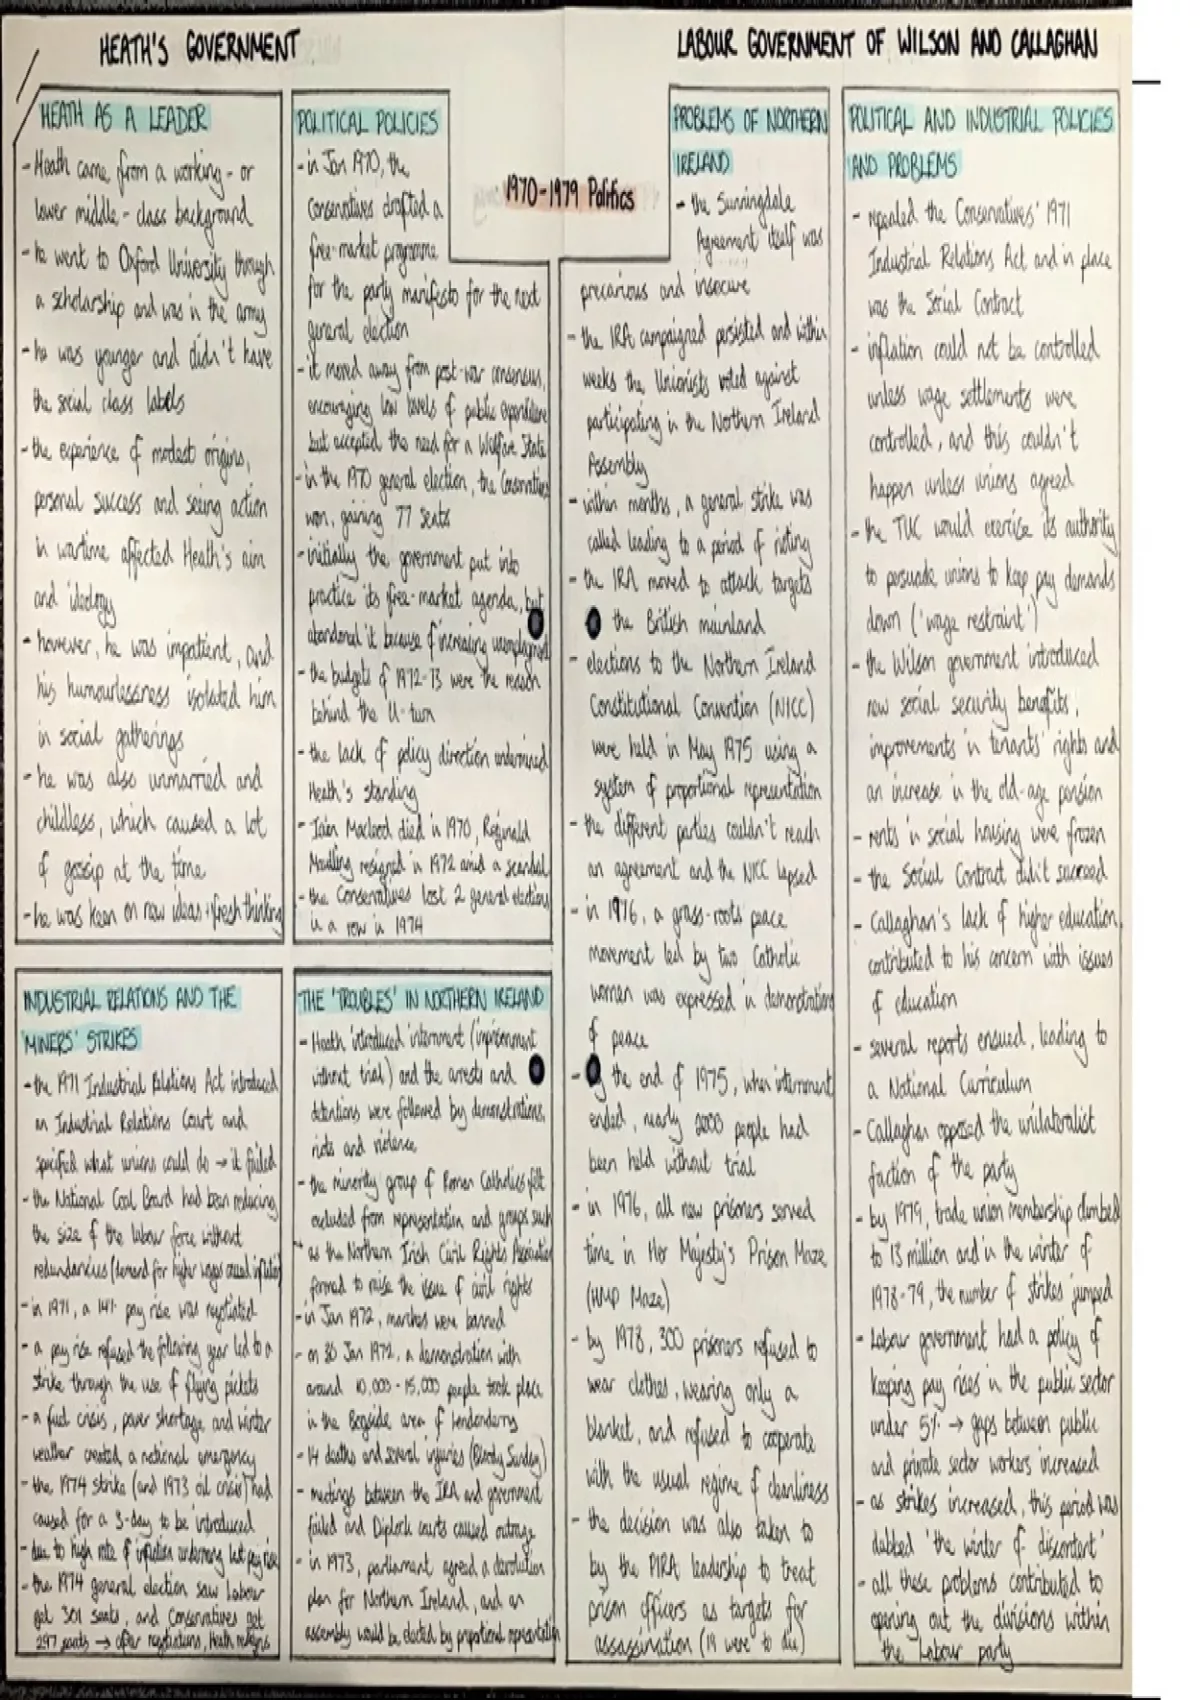 HEATH'S GOVERNMENT
LABOUR GOVERNMENT OF WILSON AND CALLAGHAN
1970-1979 Politics
HEATH AS A LEADER
- Heath came from a working- or
lower middle-class background
- he went to Oxford University through
a scholarship and was in the army
- he was younger and didn't have
the social class labels
- the experience of modest origins,
personal success and seeing action
in wartime affected Heath's aim
and ideology
- however, he was impatient, and
his humourlessness isolated him
in social gatherings
- he was also unmarried and
childless, which caused a lot
of gossip at the time
- he was keen on new ideas + fresh thinking
INDUSTRIAL RELATIONS AND THE
MINERS' STRIKES
- the 1971 Industrial Relations Act introduced
an Industrial Relations Court and
specified what unions could do → it failed
- the National Coal Board had been reducing
the size of the labour force without
redundancies (demand for higher wages caused inflation)
- in 1971, a 14% pay rise was negotiated
- a pay rise refused the following year led to a
strike through the use of flying pickets
- a fuel crisis, power shortage and winter
weather created a national emergency
- the 1974 strike (and 1973 oil crisis) had
caused for a 3-day to be introduced
- due to high rate of inflation undermining last pay rise
- the 1974 general election saw Labour
get 301 seats, and Conservatives get
297 seats → after negotiations, Heath resigns
POLITICAL POLICIES
- in Jan 1970, the
Conservatives drafted a
free-market programme
for the party manifesto for the next
general election
- it moved away from post-war consensus,
encouraging low levels of public expenditure
but accepted the need for a Welfare State
- in the 1970 general election, the Conservatives
won, gaining 77 seats
- initially the government put into
practice its free-market agenda, but
abandoned it because of increasing unemployment
- the budgets of 1972-73 were the reason
behind the U-turn
- the lack of policy direction undermined
Heath's standing
- Iain Macleod died in 1970, Reginald
Maudling resigned in 1972 amid a scandal
- the Conservatives lost 2 general elections
in a row in 1974
THE 'TROUBLES' IN NORTHERN IRELAND
- Heath introduced internment (imprisonment
without trial) and the arrests and
detentions were followed by demonstrations,
riots and violence
- the minority group of Roman Catholics felt
excluded from representation and groups such
as the Northern Irish Civil Rights Association
formed to raise the issue of civil rights
- in Jan 1972, marches were banned
- on 30 Jan 1972, a demonstration with
around 10,000 - 15,000 people took place
in the Bogside area of Londonderry
- 14 deaths and several injuries (Bloody Sunday)
- meetings between the IRA and government
failed and Diplock courts caused outrage
- in 1973, parliament agreed a devolution
plan for Northern Ireland, and an
assembly would be elected by proportional representation
PROBLEMS OF NORTHERN
IRELAND
- the Sunningdale
Agreement itself was
precarious and insecure
- the IRA campaigned persisted and within
weeks the Unionists voted against
participating in the Northern Ireland
Assembly
- within months, a general strike was
called leading to a period of rioting
- the IRA moved to attack targets
the British mainland
- elections to the Northern Ireland
Constitutional Convention (NICC)
were held in May 1975 using a
system of proportional representation
- the different parties couldn't reach
an agreement and the NICC lapsed
- in 1976, a grass-roots peace
movement led by two Catholic
women was expressed in demonstrations
of peace
- the end of 1975, when internment
ended, nearly 2000 people had
been held without trial
- in 1976, all new prisoners served
time in Her Majesty's Prison Maze
(HMP Maze)
- by 1978, 300 prisoners refused to
wear clothes, wearing only a
blanket, and refused to cooperate
with the usual regime of cleanliness
- the decision was also taken to
by the PIRA leadership to treat
prison officers as targets for
assassination (19 were to die)
POLITICAL AND INDUSTRIAL POLICIES
AND PROBLEMS
- repealed the Conservatives' 1971
Industrial Relations Act and in place
was the Social Contract
- inflation could not be controlled
unless wage settlements were
controlled, and this couldn't
happen unless unions agreed
- the TUC would exercise its authority
to persuade unions to keep pay demands
down ('wage restraint')
- the Wilson government introduced
new social security benefits,
improvements in tenants' rights and
an increase in the old-age pension
- rents in social housing were frozen
- the Social Contract didn't succeed
- Callaghan's lack of higher education
contributed to his concern with issues
of education
- several reports ensued, leading to
a National Curriculum
- Callaghan opposed the unilateralist
faction of the party
- by 1979, trade union membership climbed
to 13 million and in the winter of
1978-79, the number of strikes jumped
- Labour government had a policy of
keeping pay rises in the public sector
under 5% → gaps between public
and private sector workers increased
- as strikes increased, this period was
dubbed 'the winter of discontent'
- all these problems contributed to
opening out the divisions within
the Labour party